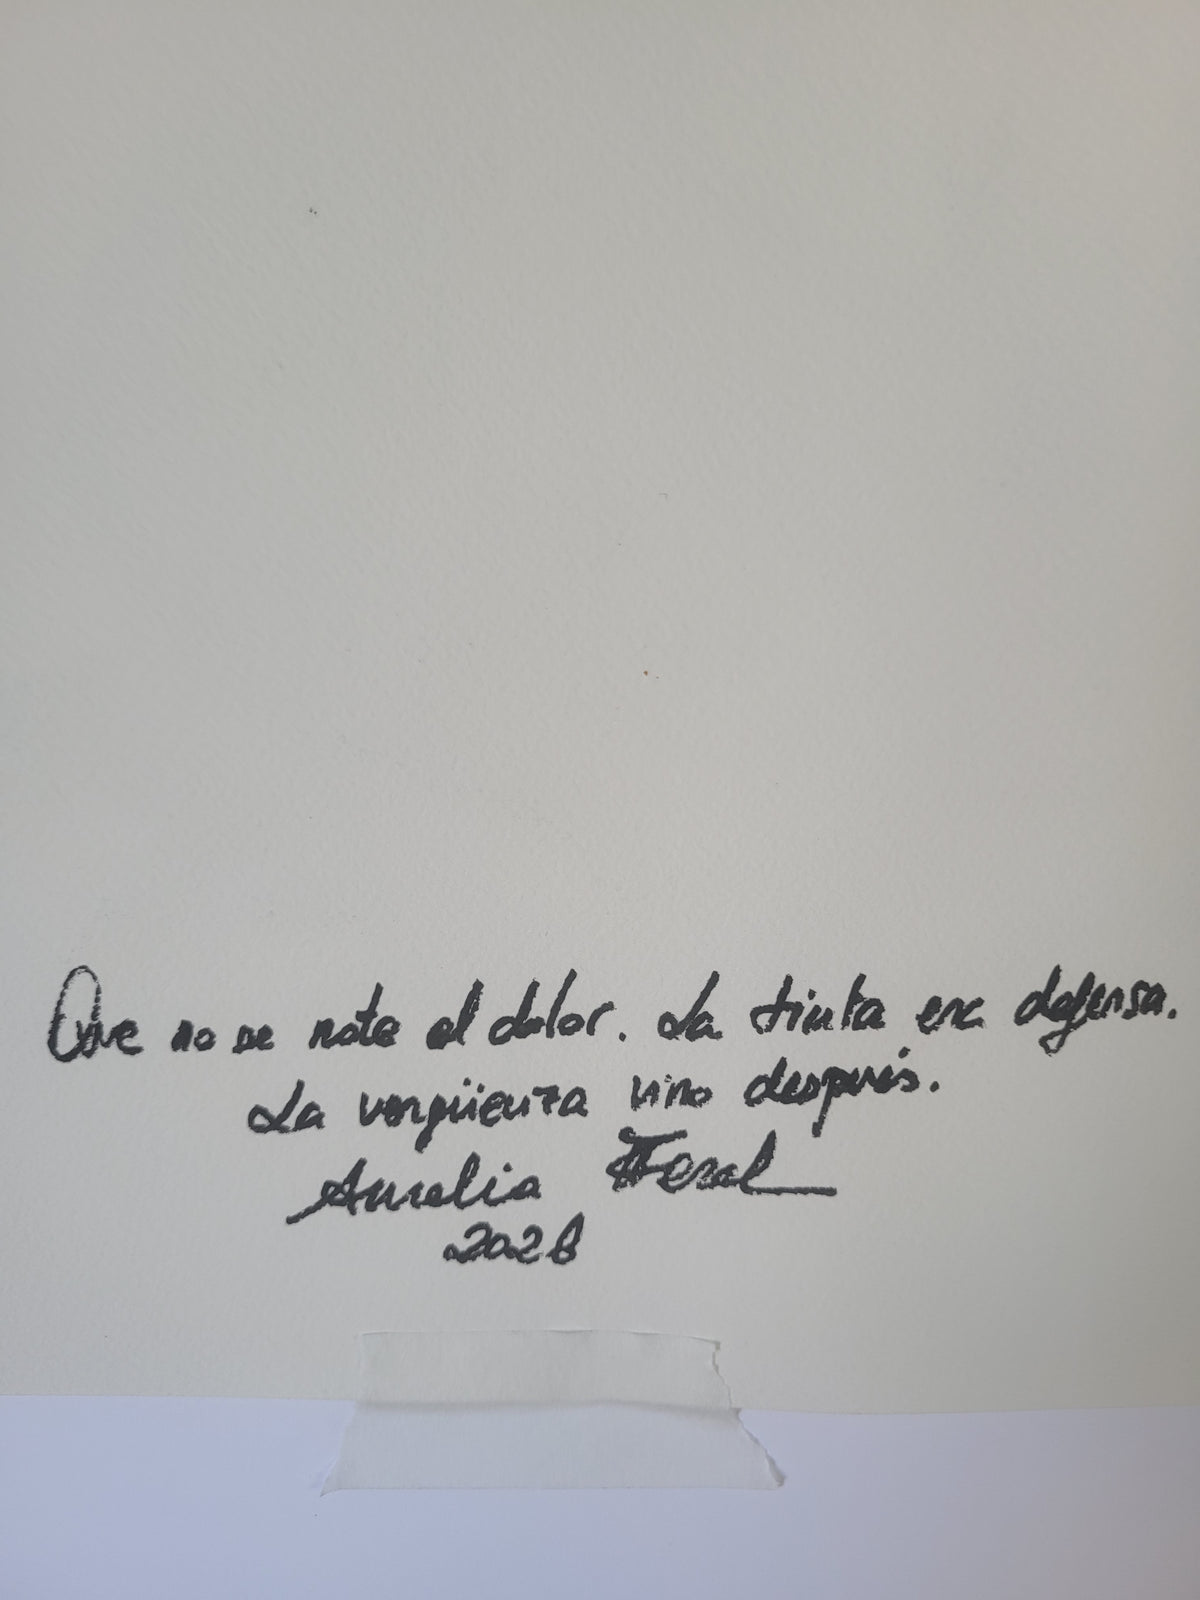 Que no se note el dolor. La tinta era defensa.
La vergüenza vino después.
Aurelia Feral
2026